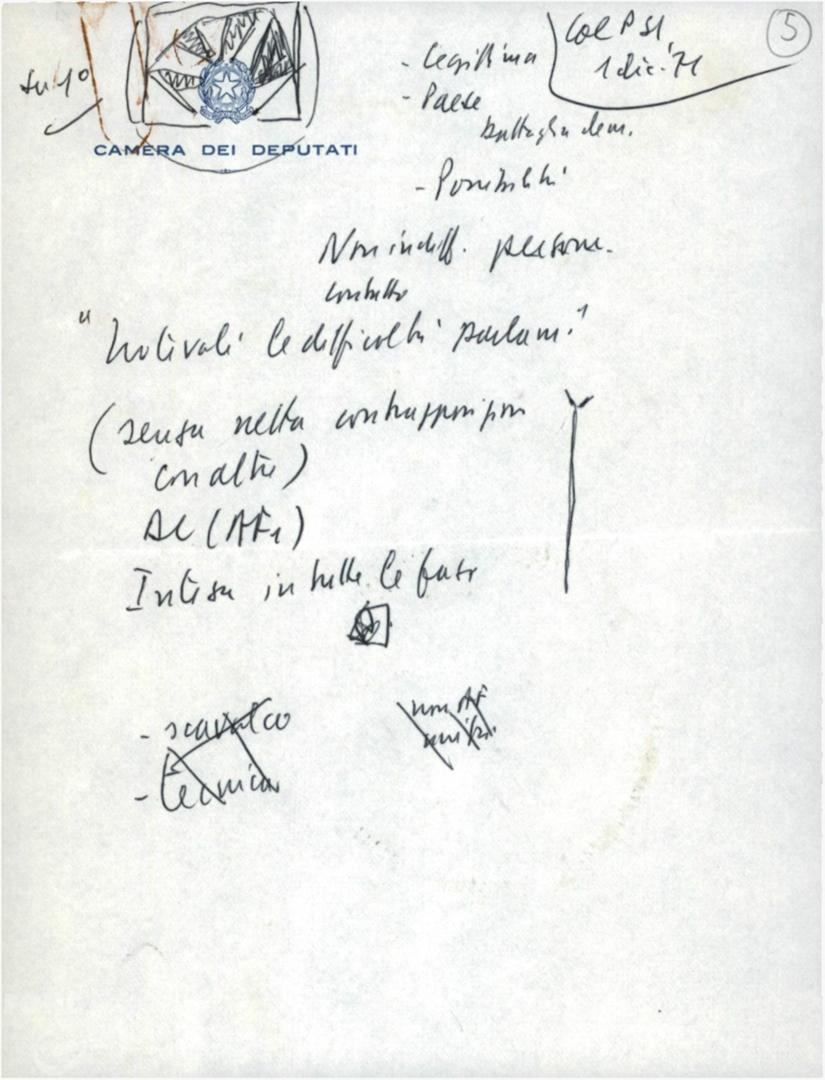 5
Col PSI
1 dic. 71
su 1°
CAMERA DEI DEPUTATI
- Legittima
- Paese
battaglia dem.
- Possibilità
Non indiff. persone.
contatto
"Motivati le difficoltà parlam."
(senza netta contrapposizion
con altri)
Intesa in tutte le fasi
- scavalco
- tecnica
non AF